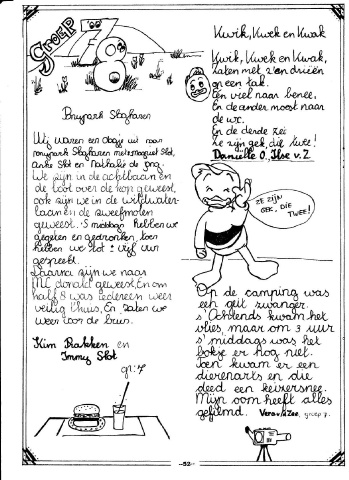 Groep 7/8
Ponypark Slagharen
Wij waren een dagje uit naar
ponypark Slagharen met
Anke Slot en Nathalie de Jong.
We zijn in de achtbaan en
de boot over de kop geweest,
ook zijn we in de wildwater-
baan en de zweefmolen
geweest. 'S middags hebben we
gegeten en gedronken, toen
hebben we tot vijf uur
gespeeld.
Daarna zijn we naar
MC donald geweest, En om
half 8 was iedereen weer
veilig thuis, En zaten we
weer voor de buis.
Kim Bakker en
Immy Slot
gr: 7
Kwik, Kwek en Kwak
Kwik, Kwek en Kwak,
zaten met z'en drieën
op een tak.
Een viel naar benee,
En de ander moest naar
de w.c.
En de derde zei
ze zijn gek, die twee!
Daniëlle O, Ilse v. Z.
ZE ZIJN
GEK, DIE
TWEE!
Op de camping was
een geit zwanger.
s' Achtends kwam het
vlies, maar om 3 uur
s' middags was het
bokje er nog niet.
Toen kwam er een
dierenarts en die
deed een keizersnee.
Mijn oom heeft alles
gefilmd. Vera v/d Zee, groep 7.
-52-